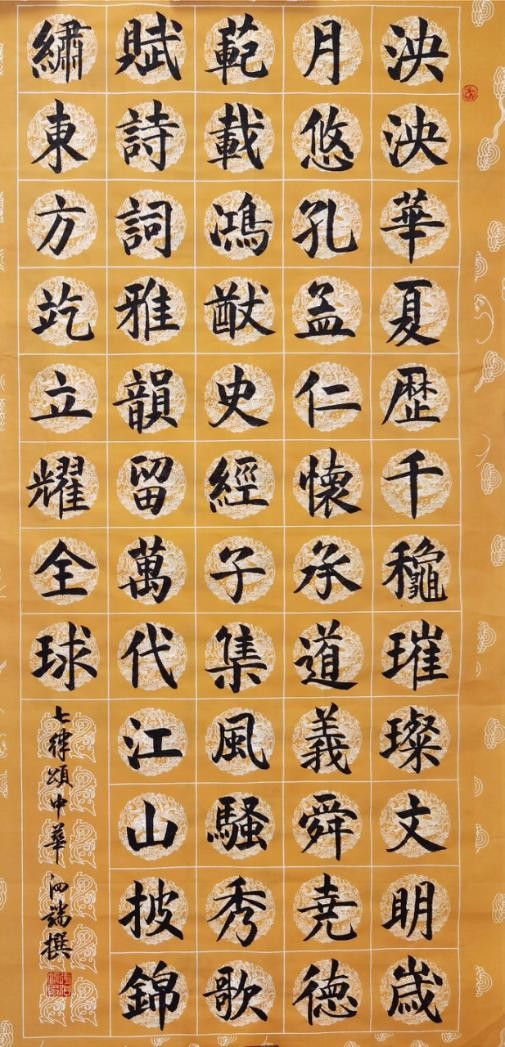 泱泱華夏歷千穐璀璨文明歲
月悠孔孟仁懷承道義舜尭德
範載鴻猷史經子集風騷秀歌
賦詩詞雅韻留萬代江山披錦
繡東方屹立耀全球
七律頌中華 撰